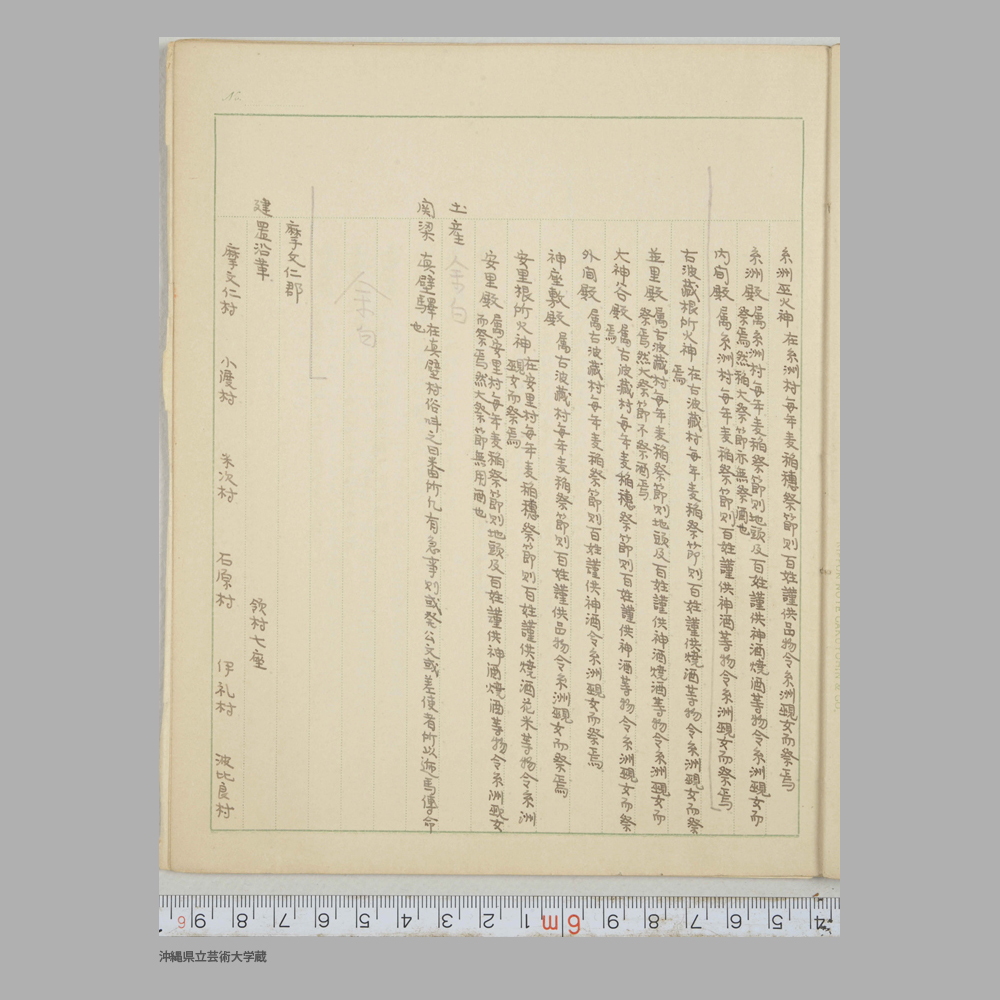 糸洲巫火神 在糸洲村毎年麦稲穂祭節則百姓謹供品物令糸洲覡女而祭焉
糸洲殿 属糸洲村毎年麦稲祭節則地頭及百姓謹供神酒焼酒等物令糸洲覡女而
祭焉然稲大祭節亦無祭酒也
内間殿 属糸洲村毎年麦稲祭節則百姓謹供神酒等物令糸洲覡女而祭焉
右波蔵根所火神 在右波蔵村毎年麦稲祭節則百姓謹供焼酒等物令糸洲覡女而祭
焉
並里殿 属右波蔵村毎年麦稲祭節則地頭及百姓謹供神酒焼酒等物令糸洲覡女而
祭焉然大祭節不祭酒焉
大神谷殿 属右波蔵村毎年麦稲穂祭節則百姓謹供神酒等物令糸洲覡女而祭
焉
外間殿 属右波蔵村毎年麦稲祭節則百姓謹供神酒令糸洲覡女而祭焉
神座敷殿 属右波蔵村毎年麦稲祭節則百姓謹供品物令糸洲覡女而祭焉
安里根所火神 在安里村毎年麦稲穂祭節則百姓謹供焼酒花米等物令糸洲
覡女而祭焉
安里殿 属安里村毎年麦稲祭節則地頭及百姓謹供神酒焼酒等物令糸洲覡女
而祭焉然大祭節無用酒也
土産 余白
関梁 真壁驛 在真壁村俗叫之曰番所凡有急事則或發公文或差使者所以逓馬傳命
也
余白
摩文仁郡
建置沿革 領村七座
摩文仁村 小渡村 米次村 石原村 伊礼村 波比良村
沖縄県立芸術大学蔵